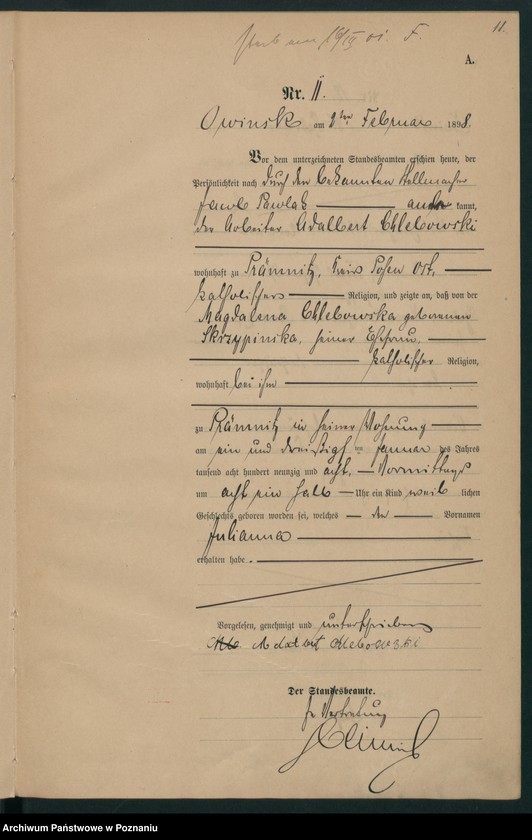 11.
A.
Nr. 11.
Owinsk am 2ten Februar 1898.
Vor dem unterzeichneten Standesbeamten erschien heute, der
Persönlichkeit nach durch den bekannten Stellmacher
Jacob Pawlak aner kannt,
der Arbeiter Adalbert Chlebowski
wohnhaft zu Prämnitz, Kreis Posen Ost,
katholischer Religion, und zeigte an, daß von der
Magdalena Chlebowska geborenen
Skrzypinska, seiner Ehefrau,
katholischer Religion,
wohnhaft bei ihm
zu Prämnitz in seiner Wohnung
am ein und dreißigsten Januar des Jahres
tausend acht hundert neunzig und acht, Vormittags
um acht ein halb Uhr ein Kind weib lichen
Geschlechts geboren worden sei, welches den Vornamen
Julianna
erhalten habe.
Vorgelesen, genehmigt und unterschrieben
Adalbert Chlebowski
Der Standesbeamte.
In Vertretung
Archiwum Państwowe w Poznaniu